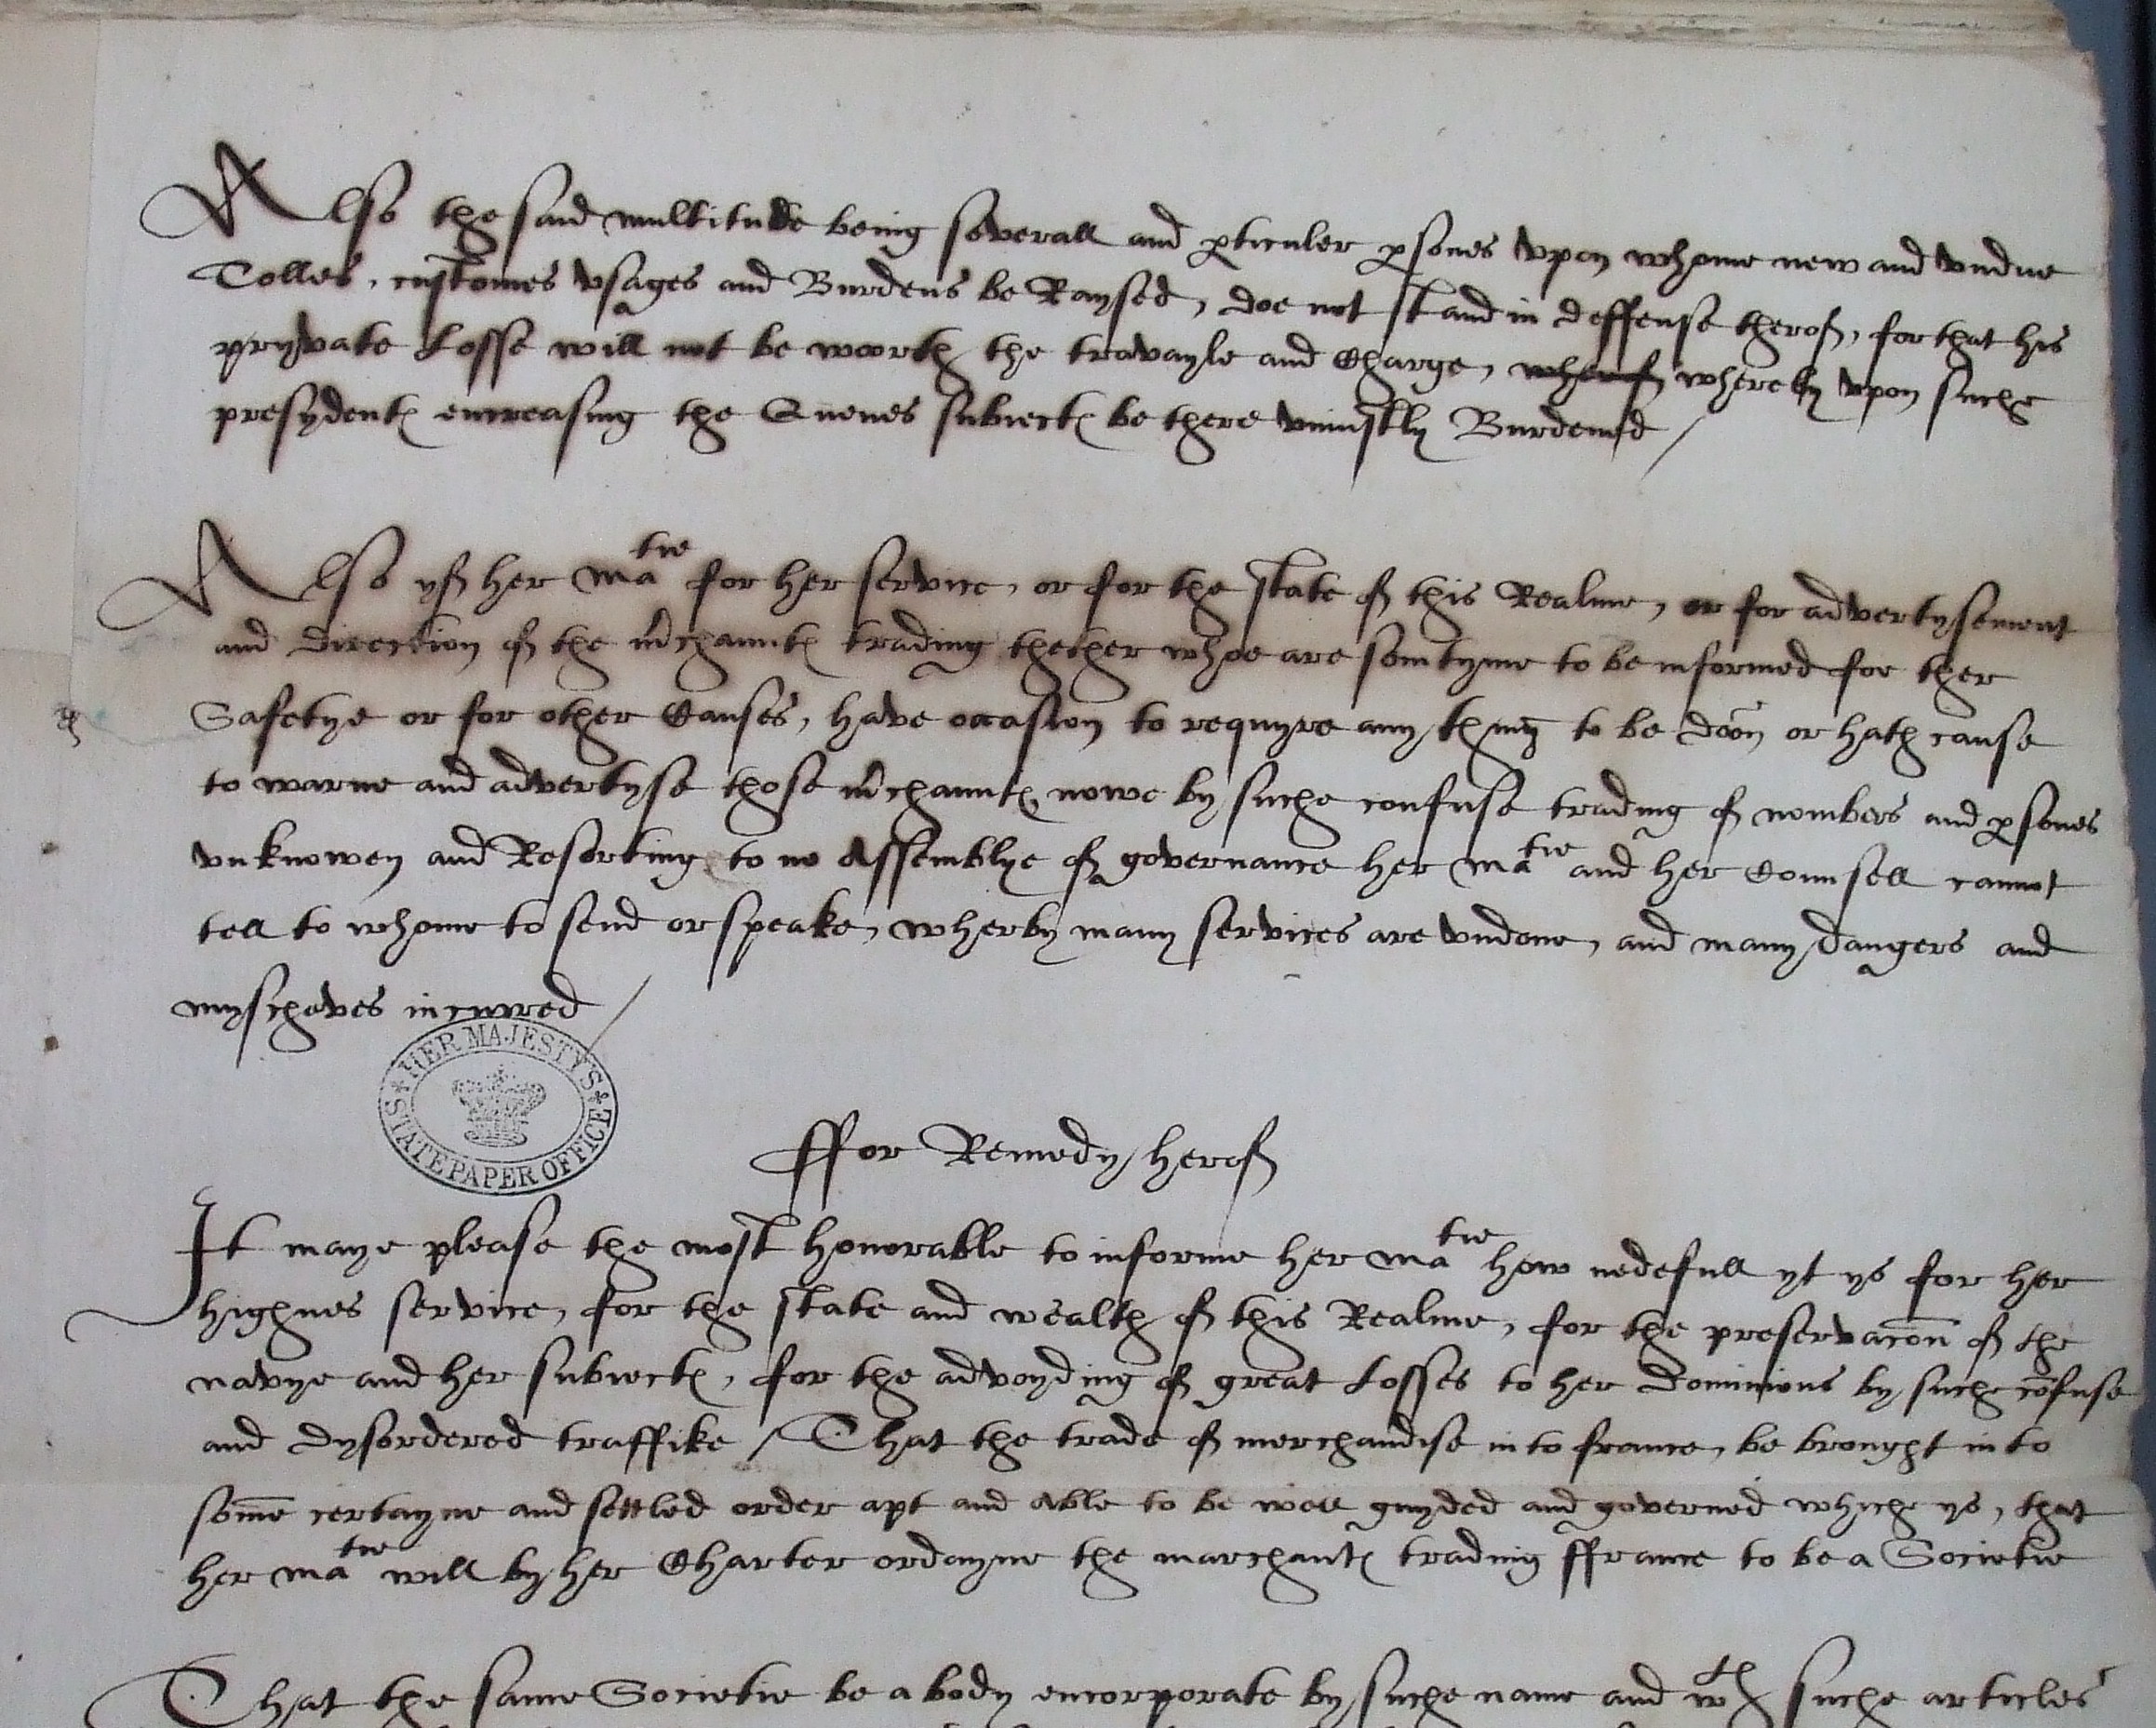 Also the said multitude being severall and pticuler psones vpon whome new and vndue
Tolles, customes vsages and Burdens be Raysed, doe not stand in deffense therof, for that his
pryvate Losse will not be woorth the travayle and Charge, wherof whereby vpon suche
presydentes encreasing the Quenes subiectes be there vniustly Burdened /
Also yf her Matie for her service, or for the state of this Realme, or for advertysement
and direction of the mchauntes trading thether whoe are somtyme to be informed for ther
Safetye or for other Causes, have occasion to requyre any thing to be doon or hath cause
to warne and advertyse those mchauntes, nowe by suche confuse trading of nombers and psones
vnknowen and Resorting to no Assemblye of governance her Matie and her Counsell cannot
tell to whome to send or speake, wherby many services are vndone, and many dangers and
myscheves incurred /
HER MAJESTY'S STATE PAPER OFFICE
ffor Remedy herof
It maye please the most honorable to informe her Matie how nedefull yt ys for her
highnes service, for the state and wealth of this Realme, for the preservacon of the
navye and her subiectes, for the advoyding of great Losses to her Dominions by suche cofuse
and dysordered traffike / That the trade of merchandise in to france, be brought in to
some certayne and settled order apt and able to be well guyded and governed whiche ys, that
her Matie will by her Charter ordayne the marchantes trading ffrance to be a Societie
That the same Societie be a body encorporate by suche name and wth suche articles